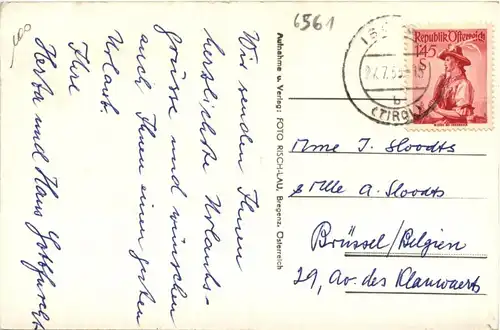 6561
Wir senden Ihnen
herzlichste Urlaubs-
grüsse und wünschen
auch Ihnen einen guten
Urlaub.
Ihre
Herta und Hans
Aufnahme u. Verlag: FOTO RISCH-LAU, Bregenz, Österreich
(TIROL)
b
Republik Österreich
1.45
S
Mme J. Sloodts
& Mlle A. Sloodts
Brüssel/Belgien
29, Av. des Klauwaerts